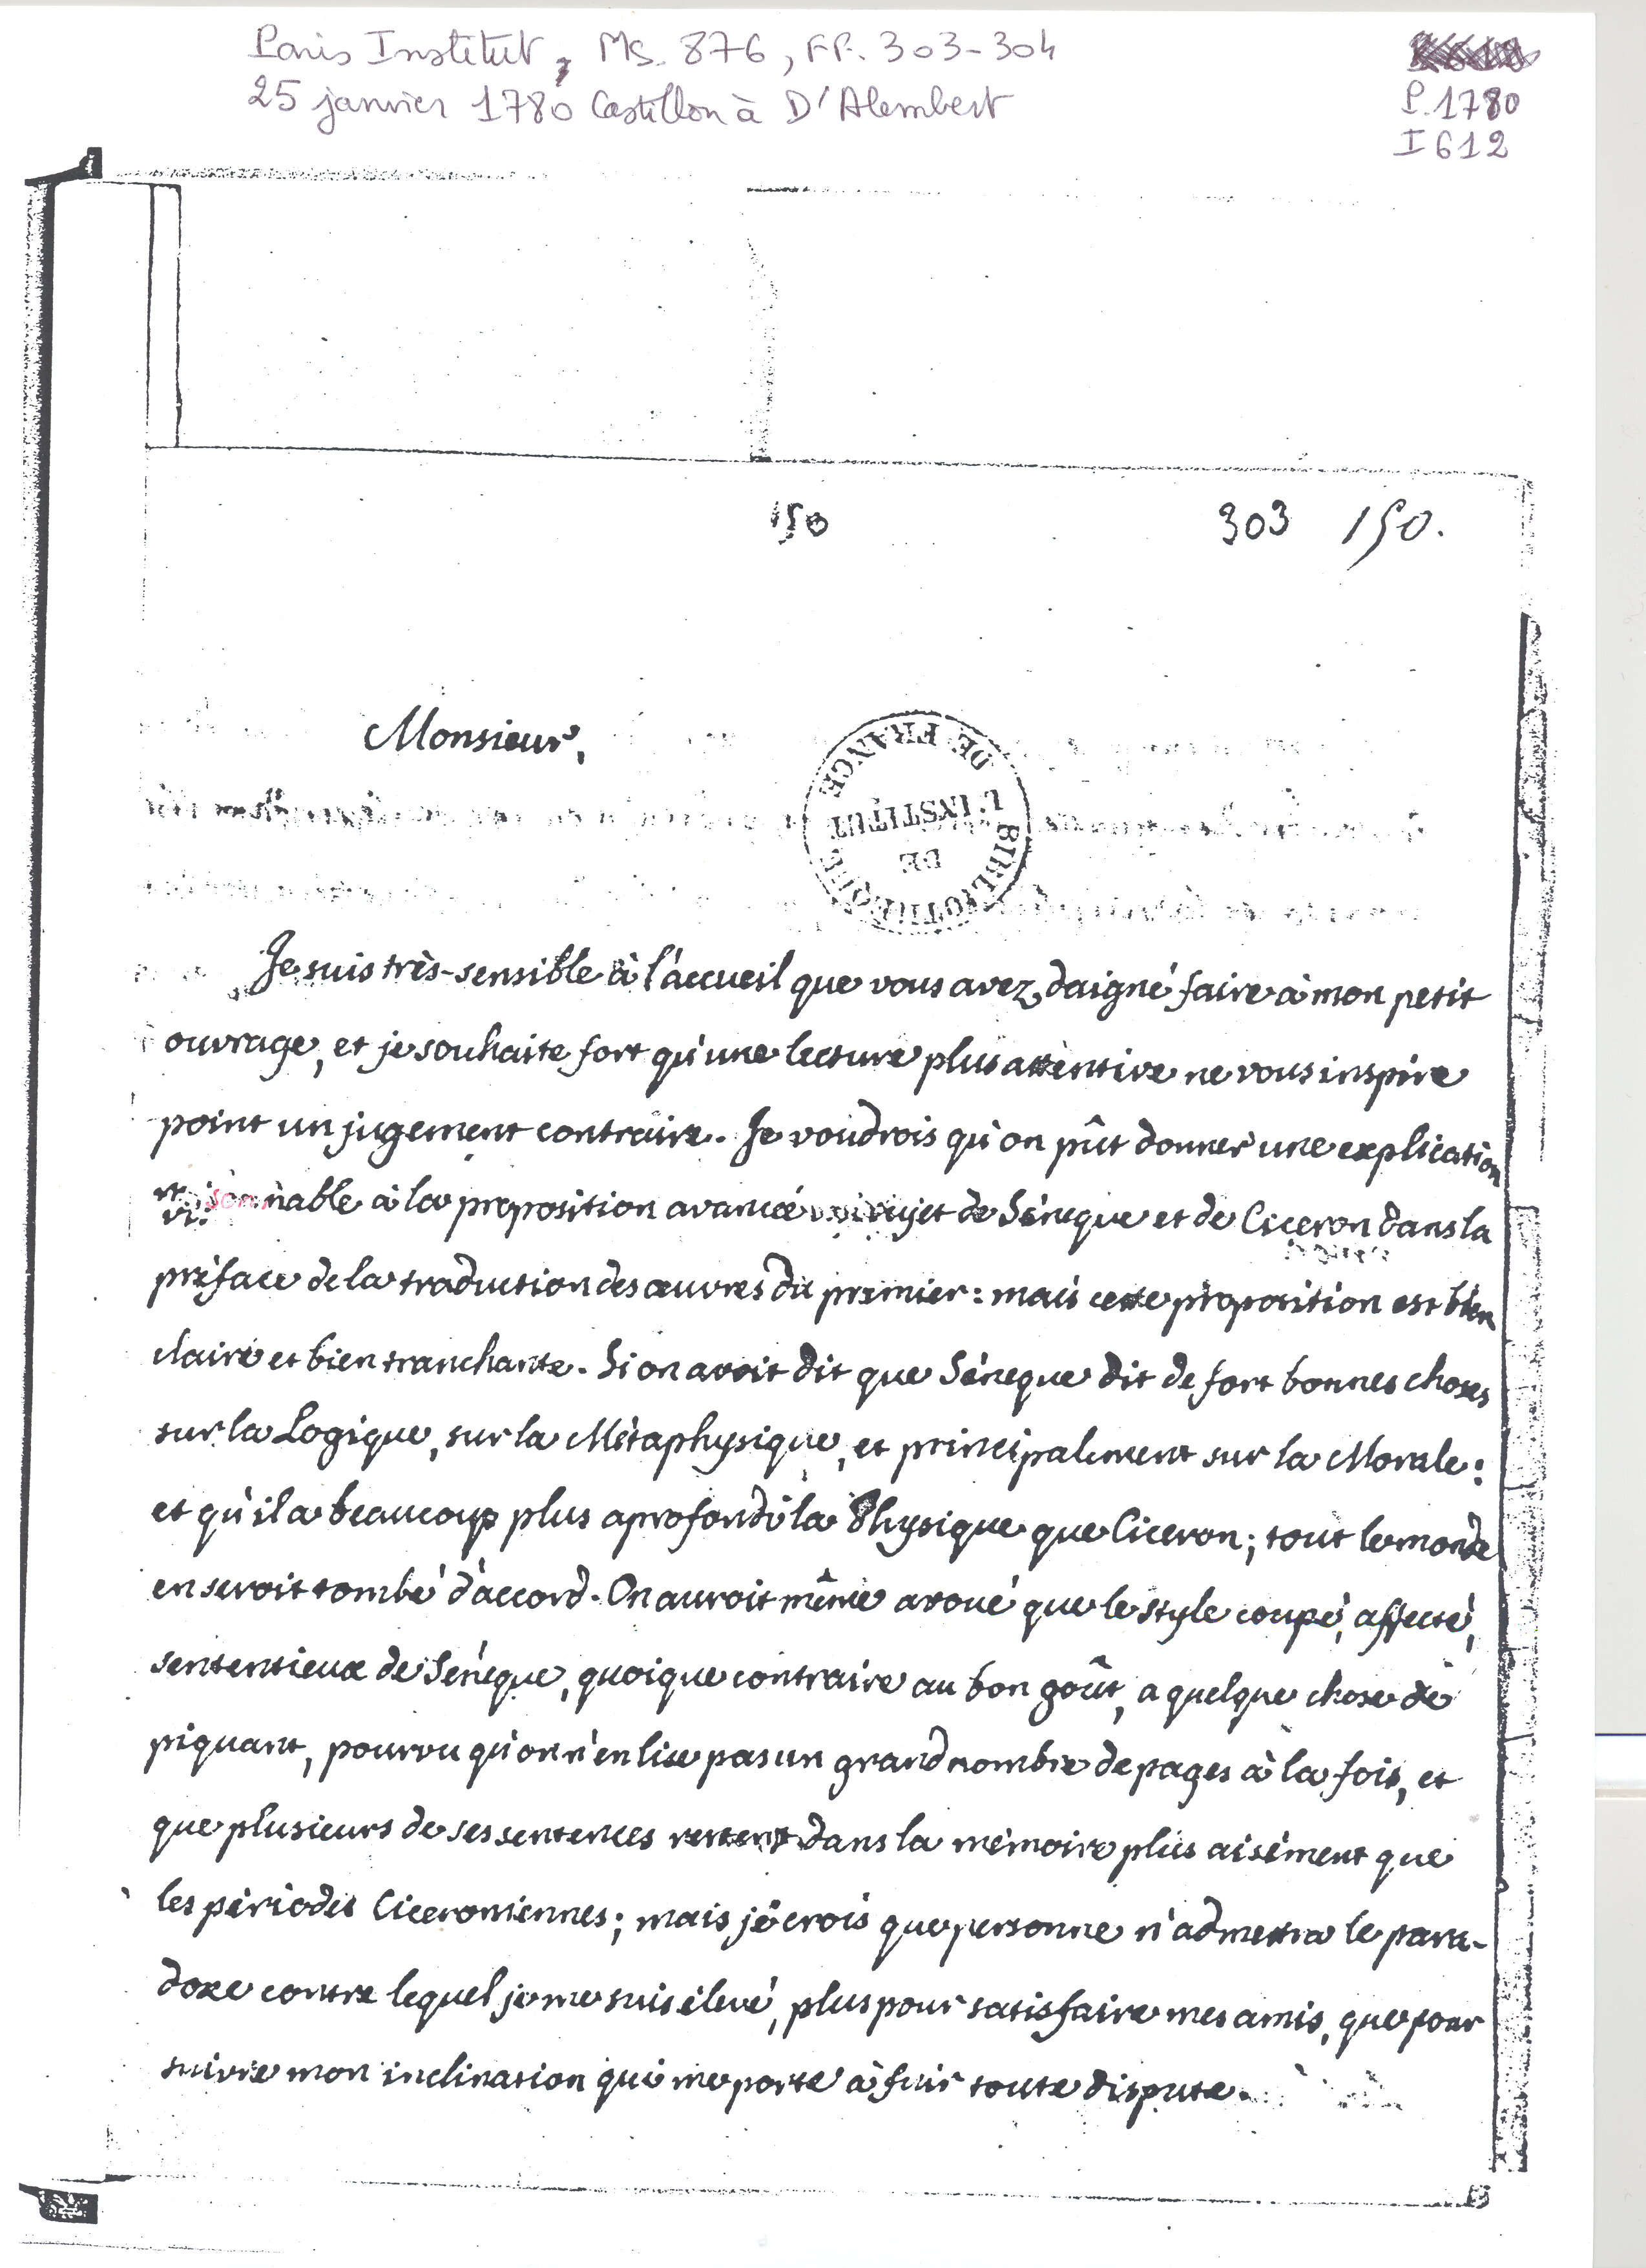 Paris Institut, Ms. 876, FF. 303-304
25 janvier 1780 Castillon à D'Alembert
P. 1780
I 612
150
303 150.
Monsieur,
BIBLIOTHEQUE DE L'INSTITUT DE FRANCE
Je suis très-sensible à l'accueil que vous avez daigné faire à mon petit
ouvrage, et je souhaite fort qu'une lecture plus attentive ne vous inspire
point un jugement contraire. Je voudrois qu'on pût donner une explication
raisonnable à la proposition avancée au sujet de Séneque et de Ciceron dans la
préface de la traduction des œuvres du premier : mais cette proposition est bien
claire et bien tranchante. Si on avoit dit que Séneque dit de fort bonnes choses
sur la Logique, sur la Métaphysique, et principalement sur la Morale :
et qu'il a beaucoup plus aprofondi la Physique que Ciceron ; tout le monde
en seroit tombé d'accord. On auroit même avoué que le style coupé, affecté,
sententieux de Séneque, quoique contraire au bon goût, a quelque chose de
piquant, pourvu qu'on n'en lise pas un grand nombre de pages à la fois, et
que plusieurs de ses sentences restent dans la mémoire plus aisément que
les périodes Ciceroniennes ; mais je crois que personne n'admettra le para-
doxe contre lequel je me suis élevé, plus pour satisfaire mes amis, que pour
suivre mon inclination qui me porte à fuir toute dispute.